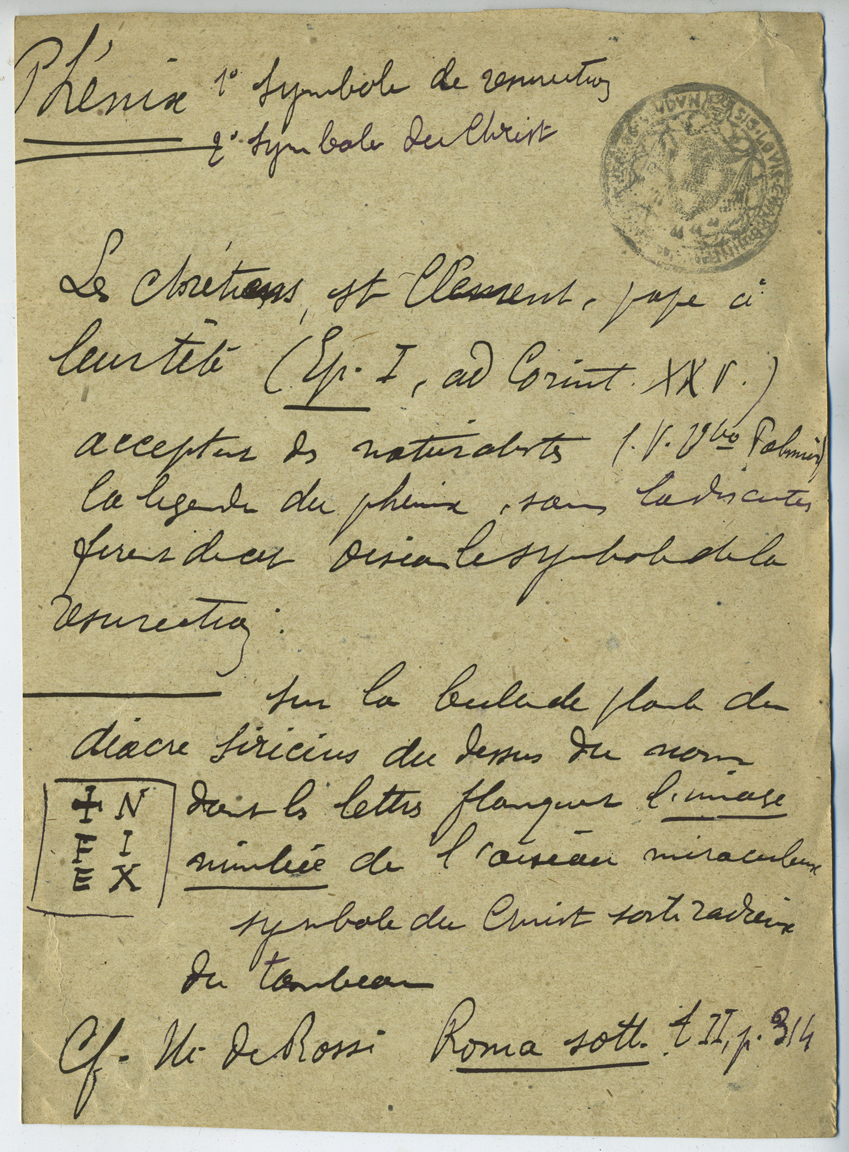 Phénix 1° Symbole de resurrection
2° Symbole du Christ
Les chrétiens, st Clement, pape à
leur tête (Ep. I, ad Corint. XXV.)
acceptant des naturalistes (.V. Vbo
la légende du phénix, sans la discuter
firent de cet oiseau le symbole de la
resurrection.
sur la bulle de plomb du
diacre Siricius au dessus du nom
dont les lettres flanquent l'image
nimbée de l'oiseau miraculeux
symbole du Christ sorti radieux
du tombeau
N
F I
E X
Cf. De Rossi Roma sott. t II, p. 314